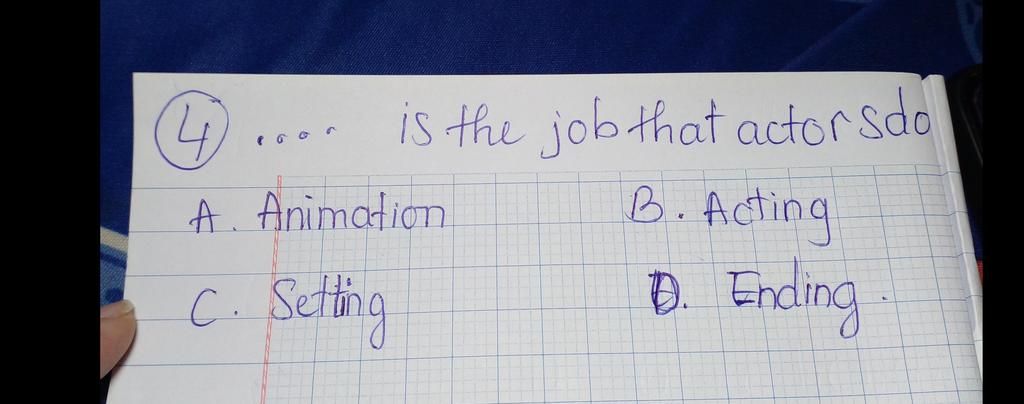 4 .... is the job that actors do
A. Animation B. Acting
C. Setting D. Ending.